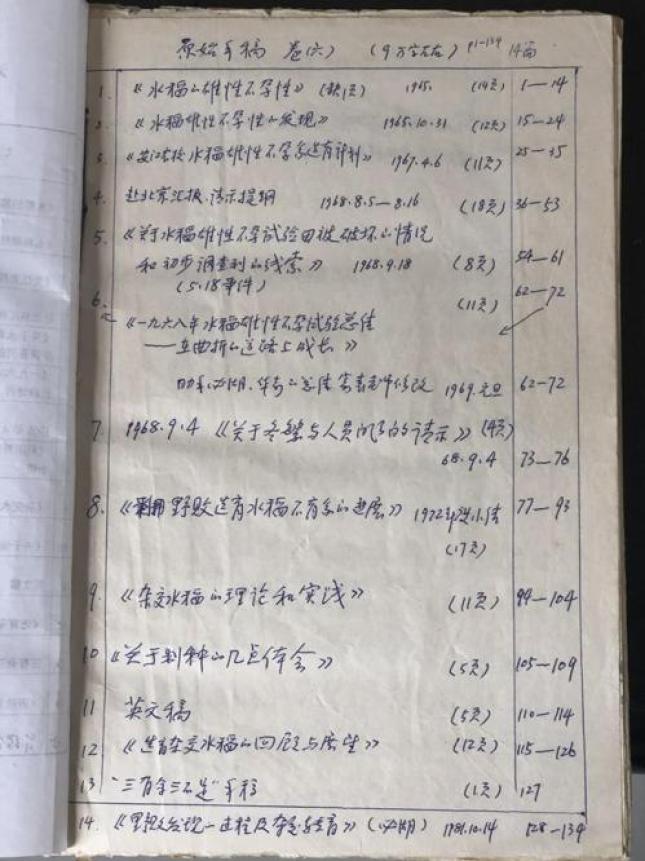 原始手稿 卷(六) (9万字左右) P1—139 14篇
1. 《水稻的雄性不孕性》 (缺1页) 1965. (14页) 1—14
2. 《水稻雄性不孕性的发现》 1965.10.31 (12页) 15—24
3. 《安江农校水稻雄性不孕系选育计划》 1967.4.6 (11页) 25—35
4. 赴北京汇报、请示提纲 1968.8.5—8.16 (18页) 36—53
5. 《关于水稻雄性不孕试验田被破坏的情况
和初步调查到的线索》 1968.9.18 (8页) 54—61
(5.18事件)
6. (11页) 62—72
《一九六八年水稻雄性不孕试验总结
——在曲折的道路上成长》
助手 的总结 袁老师修改 1969.元旦 62—72
7. 1968.9.4 《关于冬繁与人员 的请示》 (4页)
68.9.4 73—76
8. 《利用野败选育水稻不育系的进展》 1972年 小结 77—93
(17页)
9. 《杂交水稻的理论和实践》 (11页) 94—104
10 《关于制种的几点体会》 (5页) 105—109
11 英文稿 (5页) 110—114
12 《选育杂交水稻的回顾与展望》 (12页) 115—126
13 "三有余三不足"手稿 (1页) 127
14. 《野败发现 过程及 》 1981.10.14 128—139